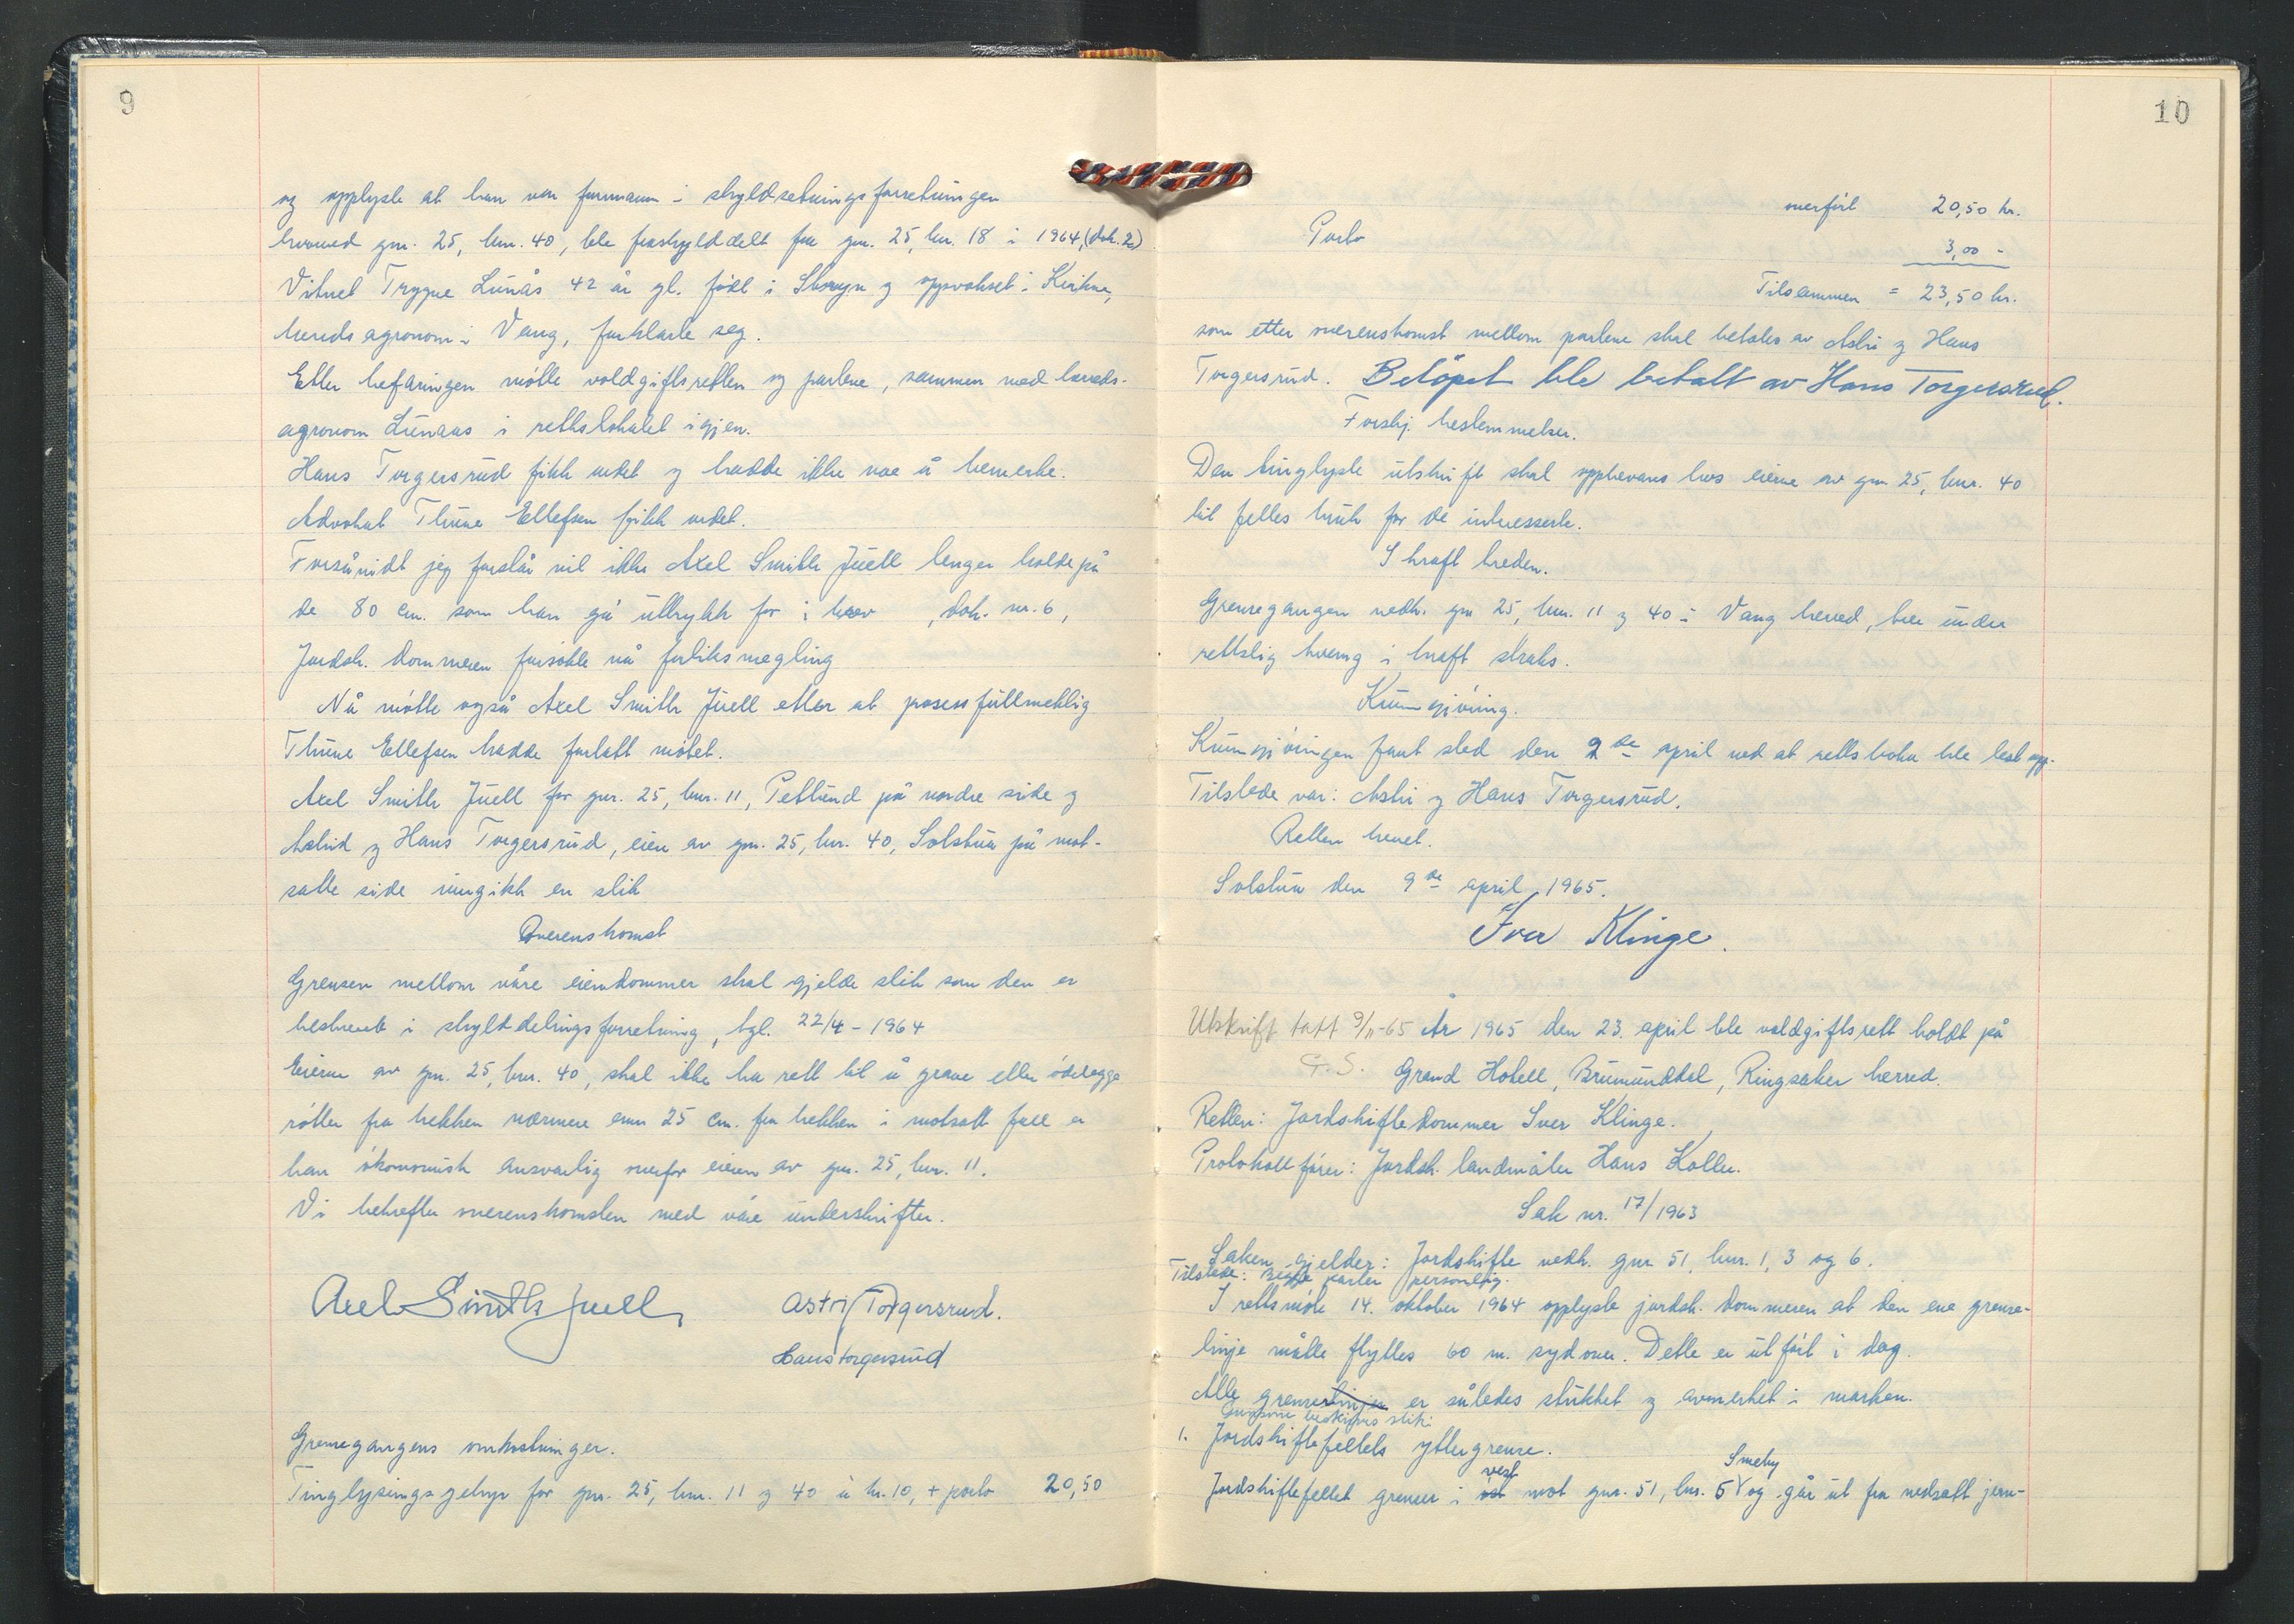 9
og opplyste at han var formann i skyldsetningsforretningen
hvorved gnr. 25, bnr. 40, ble fraskylddelt fra gnr. 25, bnr. 18 i 1964, (dok. 2)
Vitnet Trygve Lunås 42 år gl. född i Stryn og oppvokset i Kirkenr,
herredsagronom i Vang, forklarte seg.
Etter befaringen møtte voldgiftsretten og partene, sammen med herreds-
agronom Lunaas i rettslokalet igjen.
Hans Torgersrud fikk ordet og hadde ikke noe å bemerke.
Advokat Thune Ellefsen fikk ordet.
Forsåvidt jeg forstår vil ikke Axel Smith Juell lenger holde på
de 80 cm. som han ga uttrykk for i brev , dok. nr. 6,
Jordsk. dommeren forsøkte nå forliksmegling
Nå møtte også Axel Smith Juell etter at prosessfullmektig
Thune Ellefsen hadde forlatt møtet.
Axel Smith Juell for gnr. 25, bnr. 11, Petlund på nordre side og
Astrid og Hans Torgersrud, eier av gnr. 25, bnr. 40, Solstua på mot-
satte side inngikk en slik
Overenskomst
Grensen mellom våre eiendommer skal gjelde slik som den er
beskrevet i skylddelingsforretning, tgl. 22/4 - 1964
Eierne av gnr. 25, bnr. 40, skal ikke ha rett til å grave eller ødelegge
røtter fra hekken nærmere enn 25 cm. fra hekken i motsatt fall er
han økonomisk ansvarlig overfor eieren av gnr. 25, bnr. 11.
Vi bekrefter overenskomsten med våre underskrifter.
Axel Smith Juell Astri Torgersrud.
Hans Torgersrud
Grensegangens omkostninger.
Tinglysingsgebyr for gnr. 25, bnr. 11 og 40 à kr. 10, + porto 20,50
10
overført 20,50 kr.
Porto 3,00 -
Tilsammen = 23,50 kr.
som etter overenskomst mellom partene skal betales av Astri og Hans
Torgersrud. Beløpet ble betalt av Hans Torgersrud.
Forskj. bestemmelser.
Den tinglyste utskrift skal oppbevares hos eierne av gnr 25, bnr. 40
til felles bruk for de interesserte.
I kraft treden.
Grensegangen vedk. gnr 25, bnr. 11 og 40 i Vang herred, trer under
rettslig tvang i kraft straks.
Kunngjøring.
Kunngjøringen fant sted den 9de april ved at rettsboka ble lest opp.
Tilstede var: Astri og Hans Torgersrud.
Retten hevet.
Solstua den 9de april 1965.
Iver Klinge.
Utskrift tatt 9/11-65 År 1965 den 23. april ble voldgiftsrett holdt på
G. S. Grand Hotell, Brumunddal, Ringsaker herred.
Retten: Jordskiftedommer Iver Klinge.
Protokollfører: Jordsk. landmåler Hans Koller.
Sak nr. 17/1963
Saken gjelder: Jordskifte vedk. gnr 51, bnr. 1, 3 og 6.
Tilstede: Begge parter personlig.
I rettsmøte 14. oktober 1964 opplyste jordsk. dommeren at den ene grense-
linje måtte flyttes 60 m. sydover. Dette er utført i dag.
Alle grenselinjer er således stukket og avmerket i marken.
Grensene beskrives slik:
1. Jordskiftefeltets yttergrense.
vest Smeby
Jordskiftefeltet grenser i øst mot gnr. 51, bnr. 5 og går ut fra nedsatt jern-